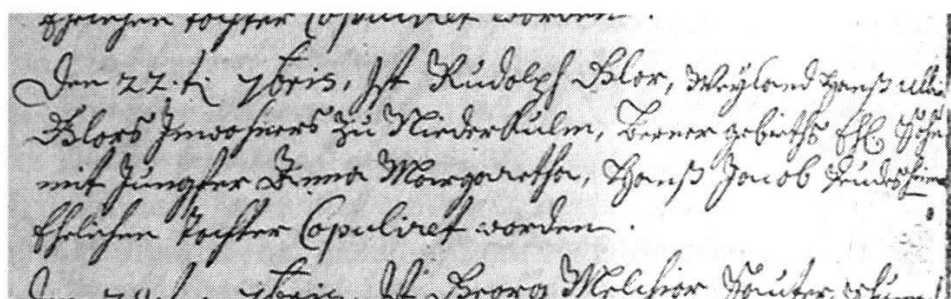 Ehelichen Tochter Copuliret worden.
Den 22.ti 7bris, Ist Rudolph Blor, Weyland Hanß Ulli
Blors Inwohners zu Niederkulm, Berner gebieths Ehl. Sohn
mit Jungfer Anna Margaretha, Hanß Jacob
Ehelichen Tochter Copuliret worden.
7bris, Ist Georg Melchior Sauter